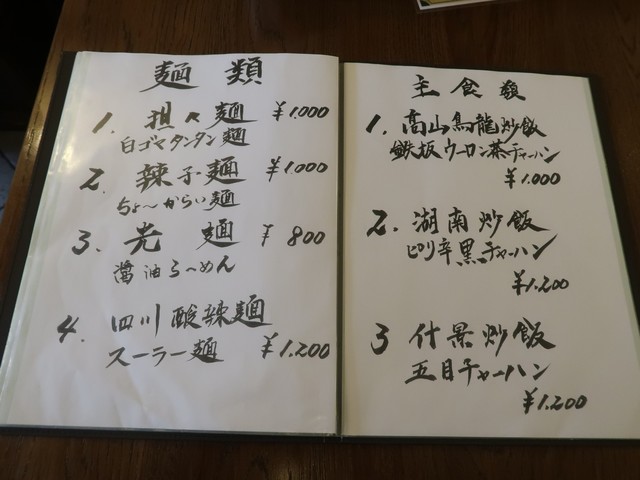 麺類
1. 担々麺 ¥1.000
白ゴマタンタン麺
2. 辣子麺 ¥1.000
ちょ〜からい麺
3. 光麺 ¥800
醤油らーめん
4. 四川酸辣麺
スーラー麺 ¥1.200
主食類
1. 高山烏龍炒飯
鉄板ウーロン茶チャーハン
¥1.000
2. 湖南炒飯
ピリ辛黒チャーハン
¥1.200
3 什景炒飯
五目チャーハン
¥1.200